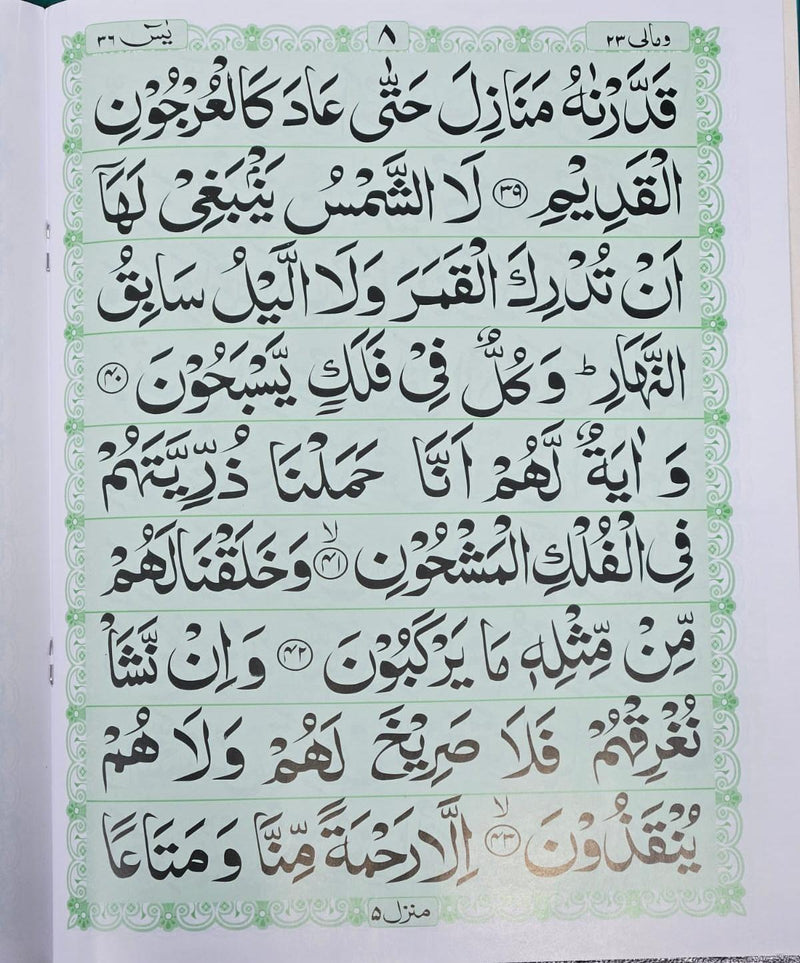 ومالی ۲۳ ۸ یٰسٓ ۳۶
قَدَّرْنٰهُ مَنَازِلَ حَتّٰى عَادَ كَالْعُرْجُوْنِ
الْقَدِيْمِ ۳۹ لَا الشَّمْسُ يَنْۢبَغِىْ لَهَاۤ
اَنْ تُدْرِكَ الْقَمَرَ وَلَا الَّيْلُ سَابِقُ
النَّهَارِ ؕ وَ كُلٌّ فِىْ فَلَكٍ يَّسْبَحُوْنَ ۴۰
وَ اٰيَةٌ لَّهُمْ اَنَّا حَمَلْنَا ذُرِّيَّتَهُمْ
فِى الْفُلْكِ الْمَشْحُوْنِ ۙ ۴۱ وَخَلَقْنَا لَهُمْ
مِّنْ مِّثْلِهٖ مَا يَرْكَبُوْنَ ۴۲ وَ اِنْ نَّشَاْ
نُغْرِقْهُمْ فَلَا صَرِيْخَ لَهُمْ وَلَا هُمْ
يُنْقَذُوْنَ ۙ ۴۳ اِلَّا رَحْمَةً مِّنَّا وَ مَتَاعًا
منزل ۵